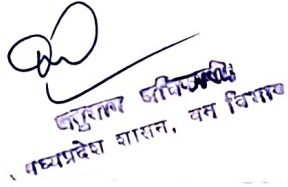 अनुभाग अधिकारी
मध्यप्रदेश शासन, वन विभाग